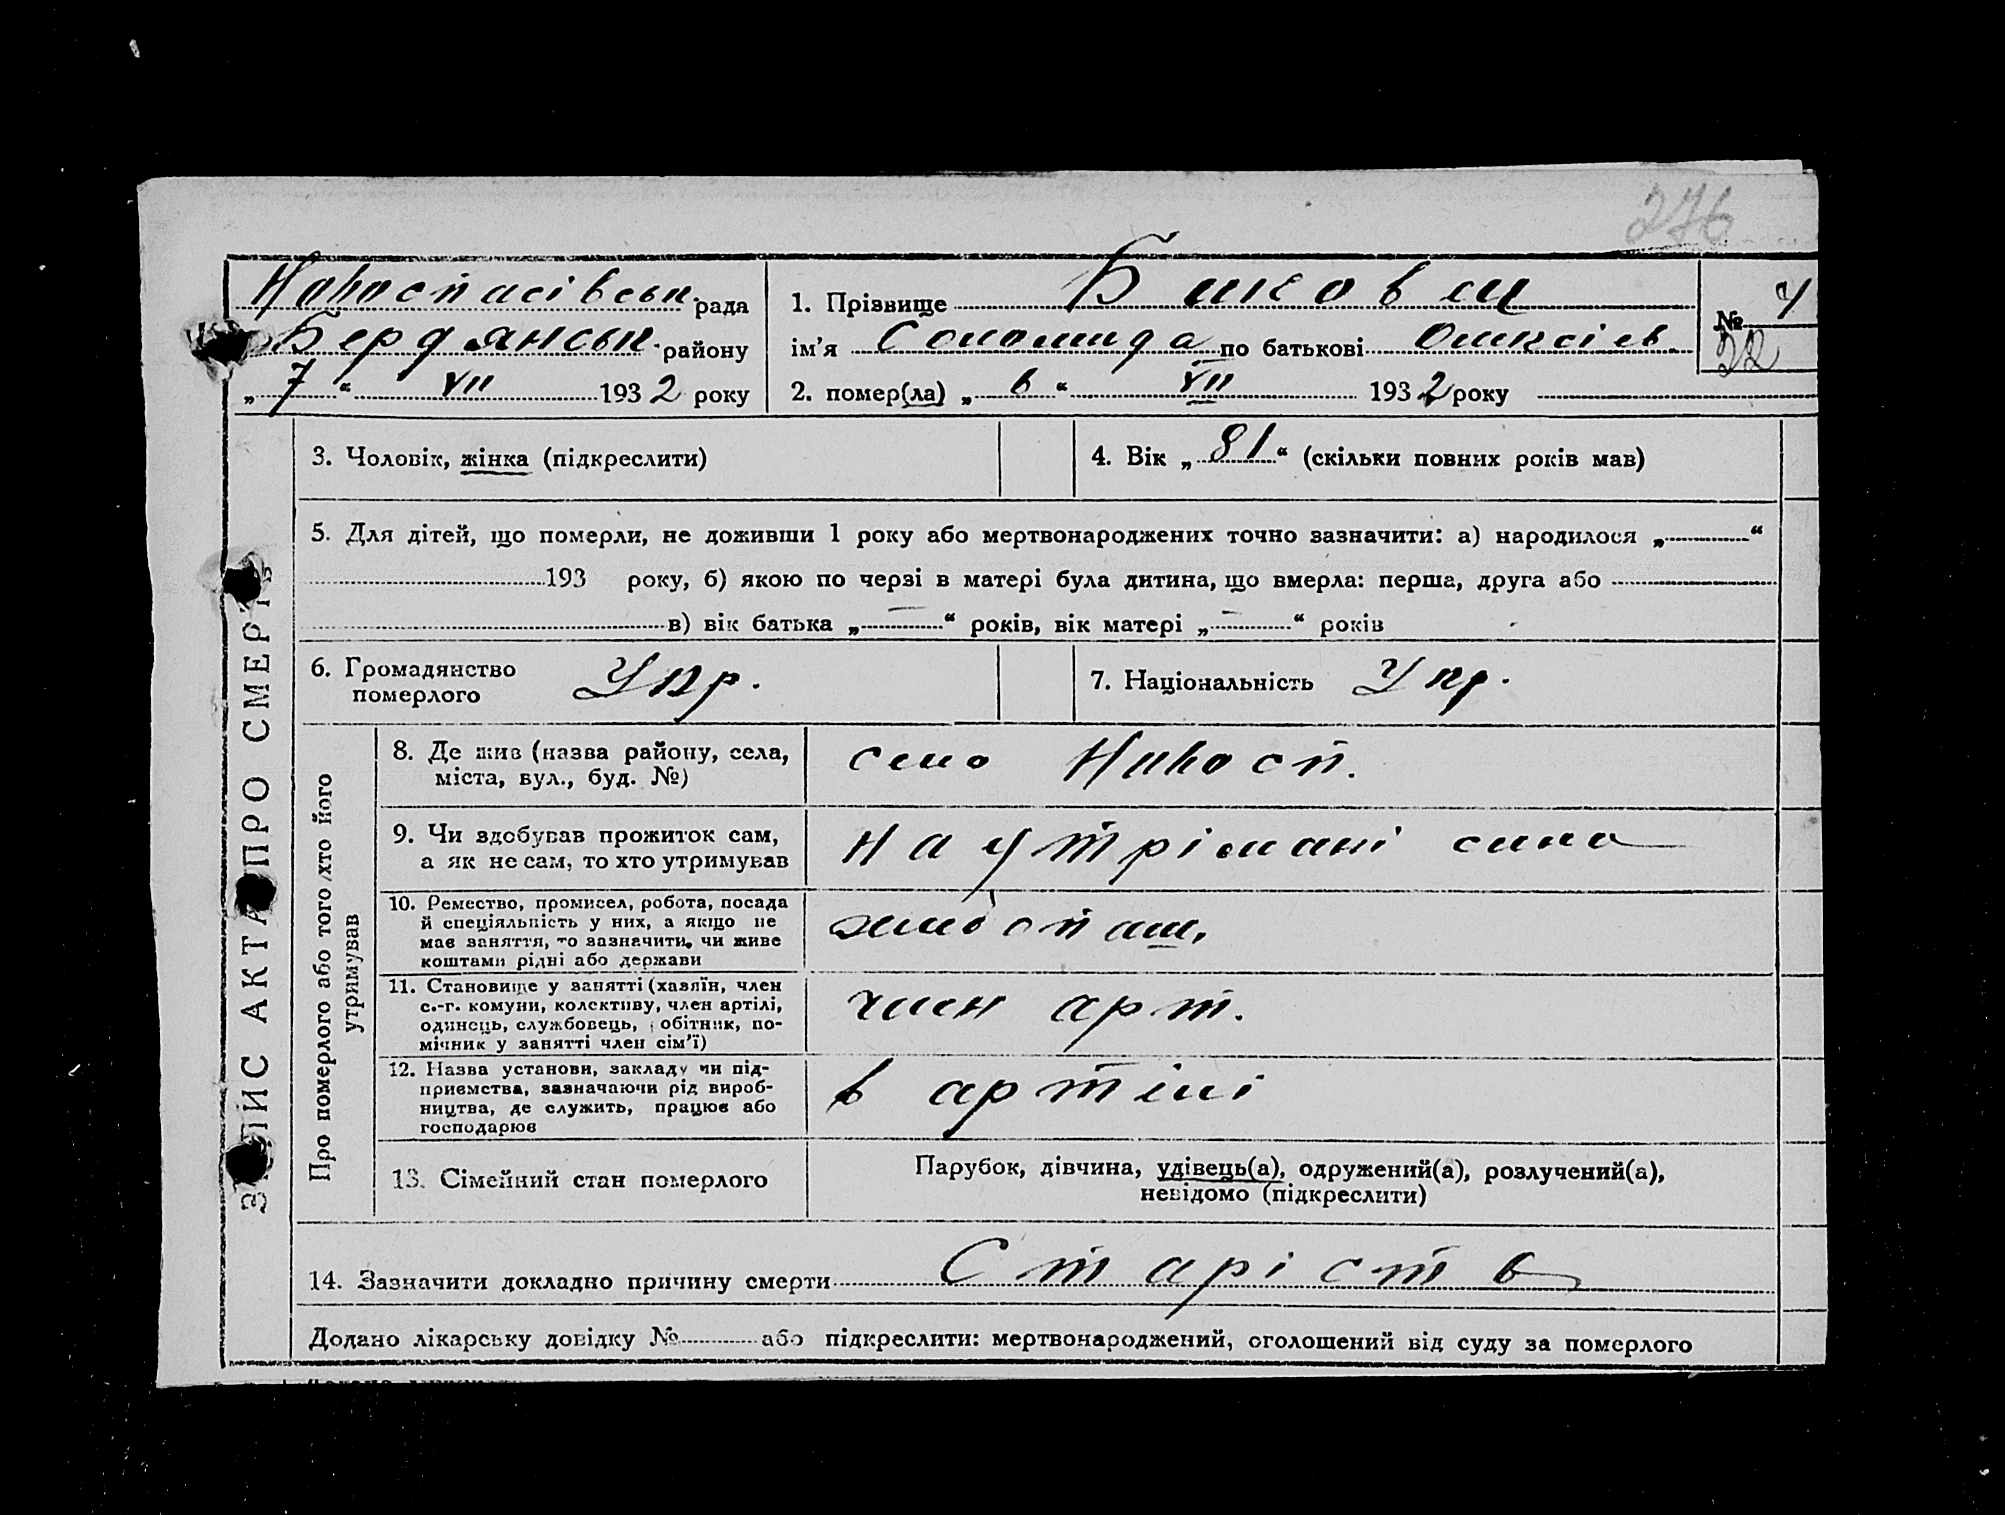 276
Новоспасівськ. рада
Бердянськ. району
„ 7 “ VII 1932 року
1. Прізвище
ім’я Соломида по батькові Олексієв.
2. помер(ла) „ 6 “ VII 1932 року
№ 4
22
ЗАПИС АКТА ПРО СМЕРТЬ
3. Чоловік, жінка (підкреслити)
4. Вік „ 81 “ (скільки повних років мав)
5. Для дітей, що померли, не доживши 1 року або мертвонароджених точно зазначити: а) народилося „ “
193 року, б) якою по черзі в матері була дитина, що вмерла: перша, друга або
в) вік батька „ — “ років, вік матері „ — “ років
6. Громадянство
померлого Укр.
7. Національність Укр.
Про померлого або того хто його
утримував
8. Де жив (назва району, села,
міста, вул., буд. №)
село Новосп.
9. Чи здобував прожиток сам,
а як не сам, то хто утримував
на утрімані сина
10. Ремество, промисел, робота, посада
й спеціяльність у них, а якщо не
має заняття, то зазначити, чи живе
коштами рідні або держави
11. Становище у занятті (хазяїн, член
с.-г. комуни, колективу, член артілі,
одинець, службовець, робітник, по-
мічник у занятті член сім’ї)
член арт.
12. Назва установи, закладу чи під-
приємства, зазначаючи рід вироб-
ництва, де служить, працює або
господарює
в артілі
13. Сімейний стан померлого
Парубок, дівчина, удівець(а), одружений(а), розлучений(а),
невідомо (підкреслити)
14. Зазначити докладно причину смерти Старість
Додано лікарську довідку № або підкреслити: мертвонароджений, оголошений від суду за померлого